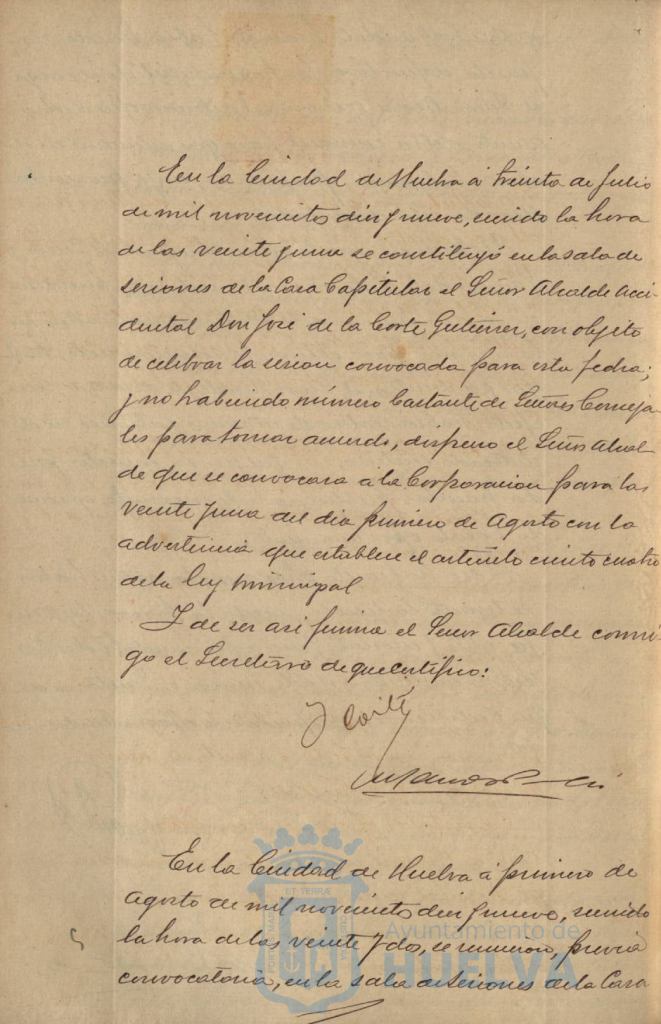 En la Ciudad de Huelva á treinta de Julio
de mil novecientos diez y nueve, siendo la hora
de las veinte y una se constituyó en la sala de
sesiones de la Casa Capitular el Señor Alcalde Acci-
dental Don José de la Corte Gutiérrez, con objeto
de celebrar la sesion convocada para esta fecha;
y no habiendo número bastante de Señores Conceja
les para tomar acuerdo, dispuso el Señor Alcal
de que se convocara á la Corporacion para las
veinte y una del dia primero de Agosto con la
advertencia que establece el artículo ciento cuatro
de la ley municipal
Y de ser asi firma el Señor Alcalde conmi-
go el Secretario de que certifico:
J Corte
En la Ciudad de Huelva á primero de
Agosto de mil novecientos diez y nueve, siendo
la hora de las veinte y dos, se reunieron, previa
convocatoria, en la sala de Sesiones de la Casa
Ayuntamiento de
HUELVA